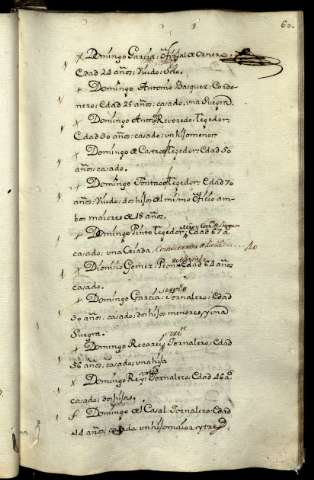 60.
x Domingo Garcia; Ofizial de
Edad 24 años; Viudo; Solo.
x Domingo Antonio Basquez Corde-
nero; Edad 25 años; casado, una Suegra
x Domingo Antº Recarede; Tegedor;
Edad 30 años; casado; un hijo menor
x Domingo de Castro Tegedor; Edad 50
años; casado.
x Domingo Tegedor; Edad 70
años; Viudo; dos hijos del mismo Oficio am-
bos maiores de 18 años.
x Domingo Pinto Tegedor; Edad 67 a
casado; una Criada.
x Dionisio Gomez Edad 64 años
casado.
x Domingo Garcia; Jornalero; Edad
30 años; casado; dos hijos menores, y una
Suegra.
x Domingo Recarey Jornalero; Edad
56 años; casado; una hija
x Domingo Rey; Jornalero; Edad 46 aº
casado; dos hijas.
Domingo del Casal Jornalero; Edad
44 años; casado un hijo maior y tres